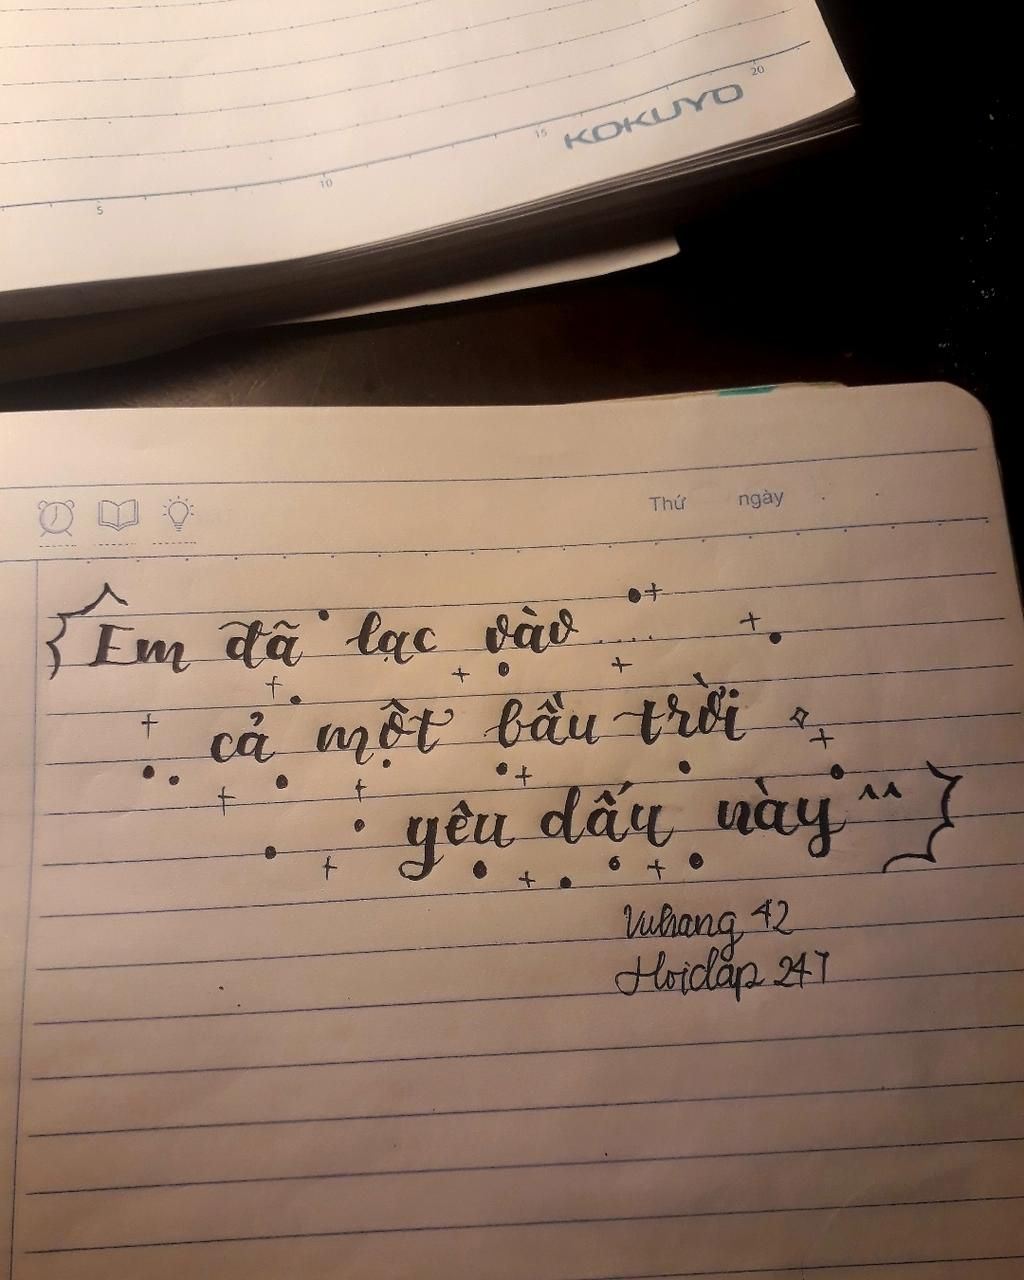 20
15
KOKUYO
10
5
Thứ ngày
Em đã lạc vào .....
cả một bầu trời
yêu dấu này ^^
Vuhang 42
Hoidap 247